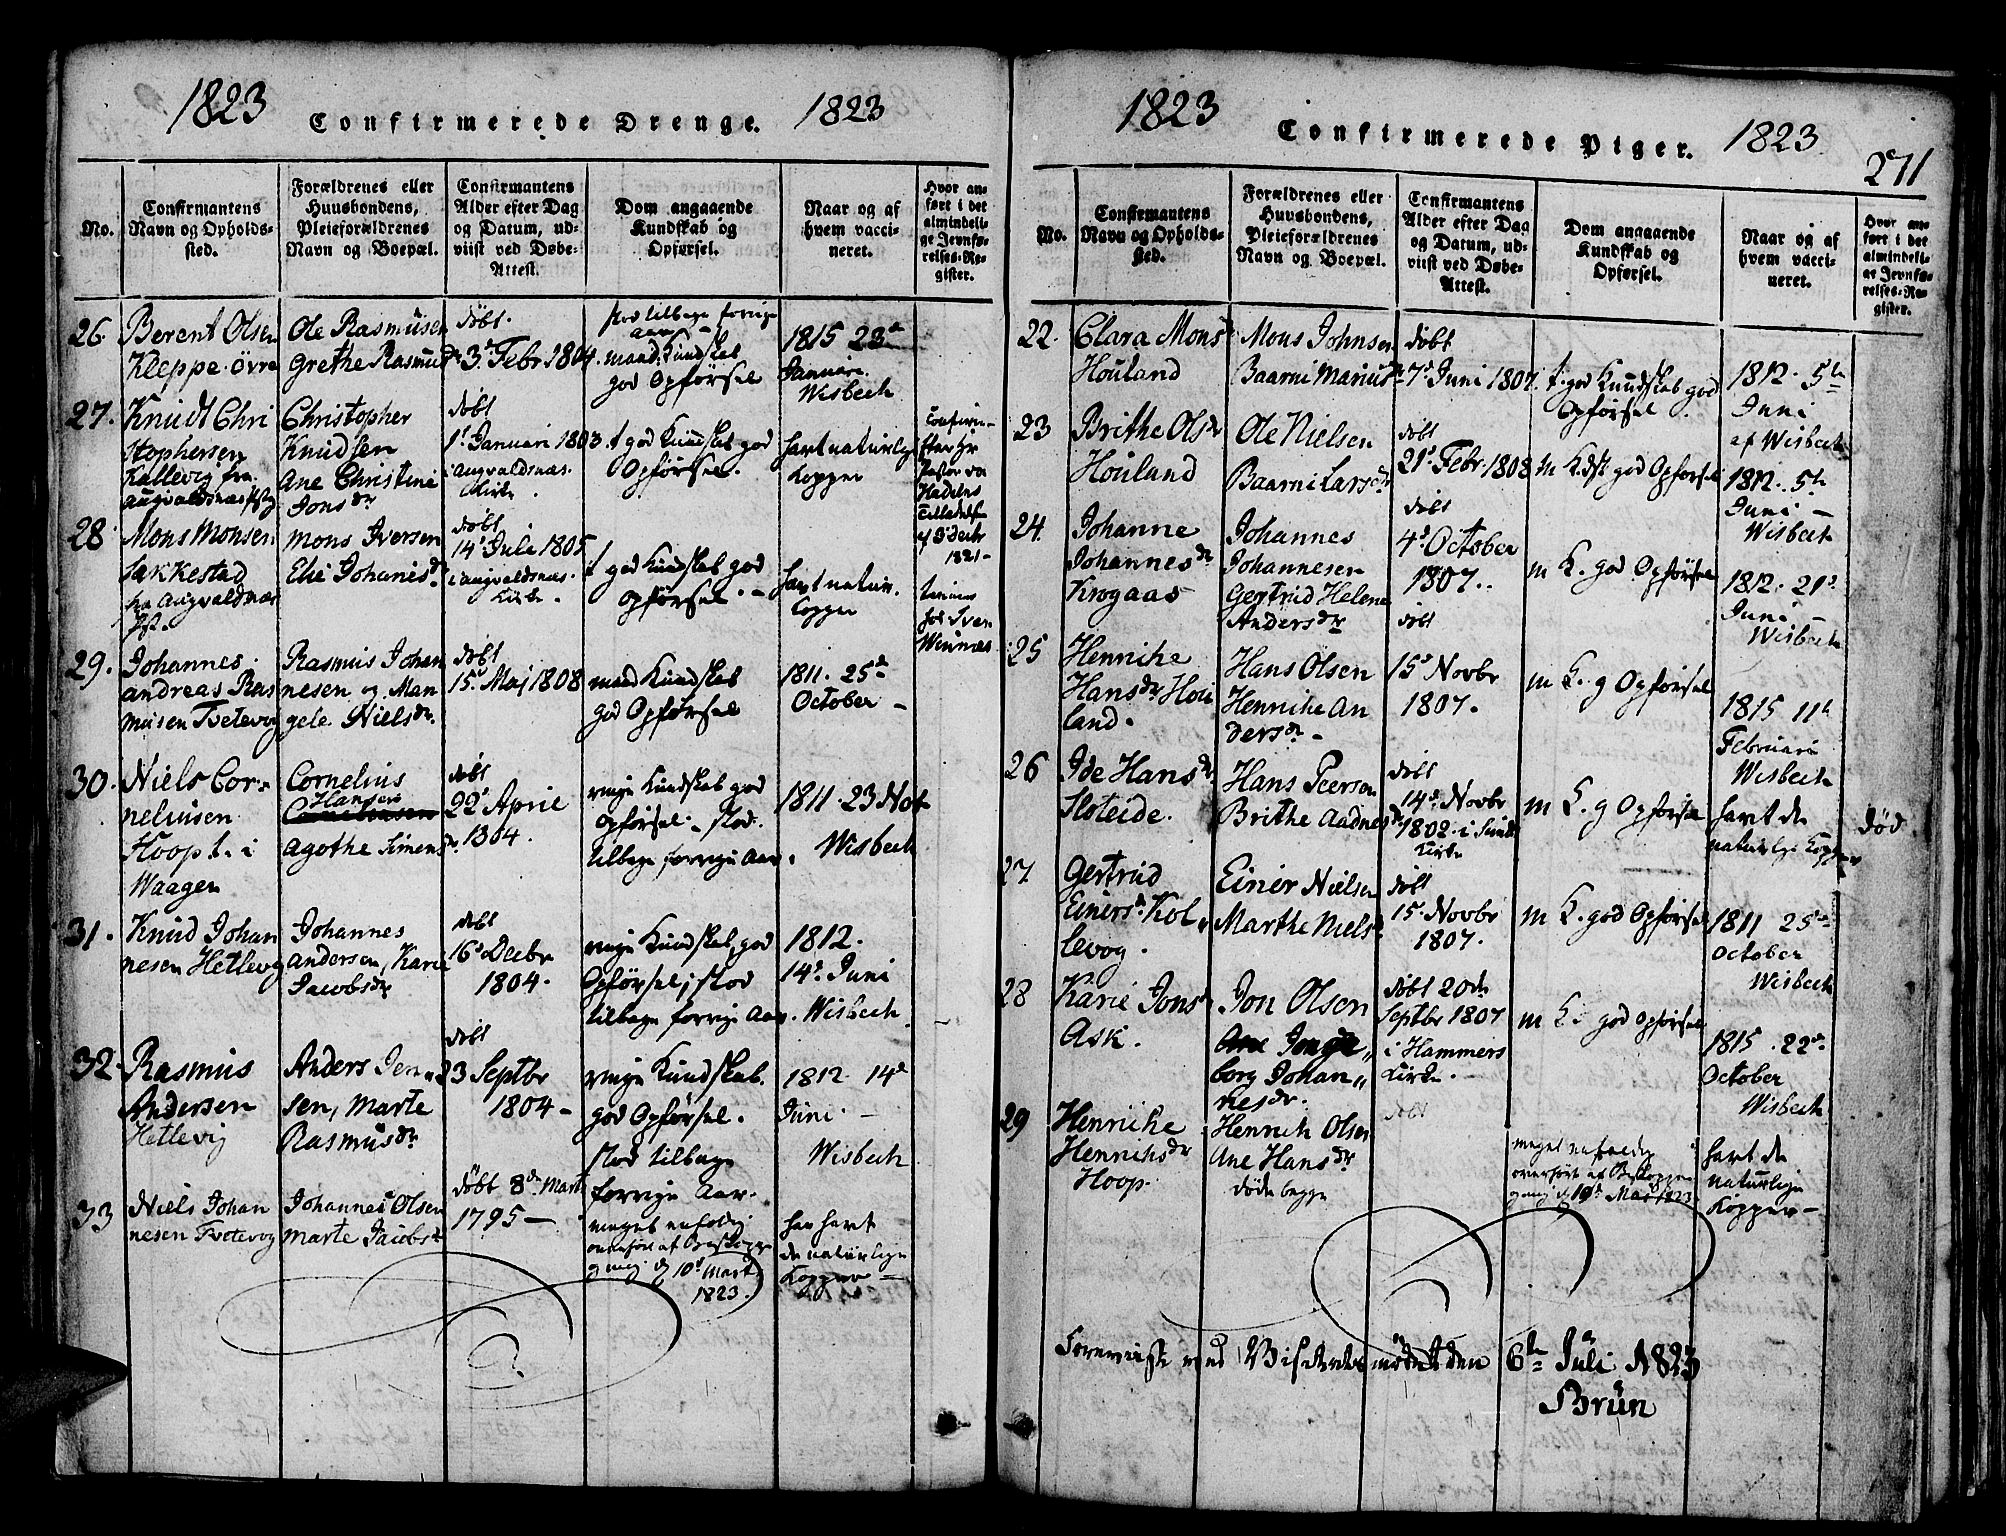 1823 Confirmerede Drenge. 1823
No.
Confirmantens
Navn og Opholds-
sted.
Forældrenes eller
Huusbondens,
Pleieforældrenes
Navn og Boepæl.
Confirmantens
Alder efter Dag
og Datum, ud-
viist ved Døbe-
Attest.
Dom angaaende
Kundskab og
Opførsel.
Naar og af
hvem vacci-
neret.
Hvor an-
ført i det
almindeli-
ge Jevnfø-
relses-Re-
gister.
26.
Berent Olsen
Kleppe. övre
Ole Rasmusen
Grethe Rasmusdr
døbt.
3d Febr 1804.
stod tilbage forrige
aar
maad. Kundskab
god Opførsel
1815 23d
Januari.
Wisbech
27.
Knudt Chri
stophersen
Kallevig fra
Augvaldsnæs Pstg
Christopher
Knudsen
Ane Christine
Jonsdr
døbt
1d Januari 1803
i Augvaldsnæs.
Kirke.
t god Kundskab god
Opførsel.
havt naturlige
Kopper
Confirm-
efter Hr
Pastor
Tilladelse
1821-
28.
Mons Monsen
Sakkestad
fra Augvaldnæs
Pst.
Mons Iversen
Elie Johanisdr
døbt
14d Juli 1805
i Augvaldsnæs.
Kirke.
t god Kundskab god
Opførsel. -
havt natur.
Kopper
tiener
hos Iver
29.
Johannes
andreas Ras
musen Tvetevog
Rasmus Johan
nesen og Man
gele Nielsdr
døbt
15d Maj 1808
maad Kundskab
god Opførsel
1811. 25d
October -
30.
Niels Cor-
neliusen
Hoop t. i
Waagen
Cornelius
Hansen
Corneliusen
Agothe Simensdr
døbt
22d April
1804.
ringe Kundskab god
Opførsel. stod.
tilbage forrige Aar.
1811. 23 Nov
Wisbech
31.
Knud Johan
nesen Hetlevog
Johannes
Andersen, Karie
Jacobsdr
døbt
16d Decbr
1804.
ringe Kundskab, god
Opførsel, stod
tilbage forrige Aar.
1812.
14d Juni
Wisbech
32.
Rasmus
Andersen
Hetlevig
Anders Jen-
sen, Marte
Rasmusdr
døbt
23 Septbr
1804 -
ringe Kundskab.
god Opførsel.
stod tilbage
forrige Aar.
1812. 14d
Juni. -
Wisbech
33
Niels Johan
nesen Tvetevog
Johannes Olsen
Marte Jacobsdr
døbt 8de Marts
1795 -
meget enfoldig
overhørt af Biskoppen
og mig d 10d Mart
1823.
han havt
de naturlige
Kopper -
1823 Confirmerede Piger. 1823
271
No.
Confirmantens
Navn og Opholds-
sted.
Forældrenes eller
Huusbondens,
Pleieforældrenes
Navn og Boepæl.
Confirmantens
Alder efter Dag
og Datum, ud-
viist ved Døbe-
Attest.
Dom angaaende
Kundskab og
Opførsel.
Naar og af
hvem vacci-
neret.
Hvor an-
ført i det
almindeli-
ge Jevnfø-
relses-Re-
gister.
22.
Clara Monsdr
Houland
Mons Johnsen
Baarni Mariusdr
døbt
7d Juni 1807.
t. god Kundskab god
Opførsel.
1812. 5te
Juni
af Wisbech
23
Brithe Olsdr
Houland
Ole Nielsen
Baarni Larsdr
døbt
21d Febr. 1808
m Kdsk god Opførsel
1812. 5te
Juni -
Wisbech
24.
Johanne
Johannesdr
Krogaas
Johannes
Johannesen
Gertrud Helene
Andersdr
døbt
4d October
1807.
m K. god Opførsel
1812. 21d
Juni -
Wisbech
25
Henrike
Hansdr Hou
land.
Hans Olsen
Henrike An
dersdr -
døbt
15d Novbr
1807.
m K. g Opførsel
1815 11te
Februari
Wisbech
26
Ide Hansdr
Sloteide.
Hans Peersen
Brithe Aadnesdr
døbt
14d Novbr
1802. i Sunds
Kirke
m K. g Opførsel
havt de
naturlige Kopper
død
27.
Gertrud
Einersdr Kol„
levog.
Einer Nielsen
Marthe Nielsdr
døbt
15. Novbr
1807.
m K. god Opførsel
1811 25de
October
Wisbech
28
Karie Jonsdr
Ask.
Jon Olsen
Ane Inge„
borg Johan„
nesdr.
døbt 20de
Septbr 1807
i Hammers
Kirke. -
m K. god Opførsel
1815. 22de
October
Wisbech
29
Henrike
Henriksdr
Hoop.
Henrik Olsen
Ane Hansdr
døde begge
døbt
meget enfoldig
overhørt af Biskoppen
og mig d 10de Mart 1823
havt de
naturlige
Kopper -
Foreviist ved Visitatsmødet den 6te Juli 1823
Brün